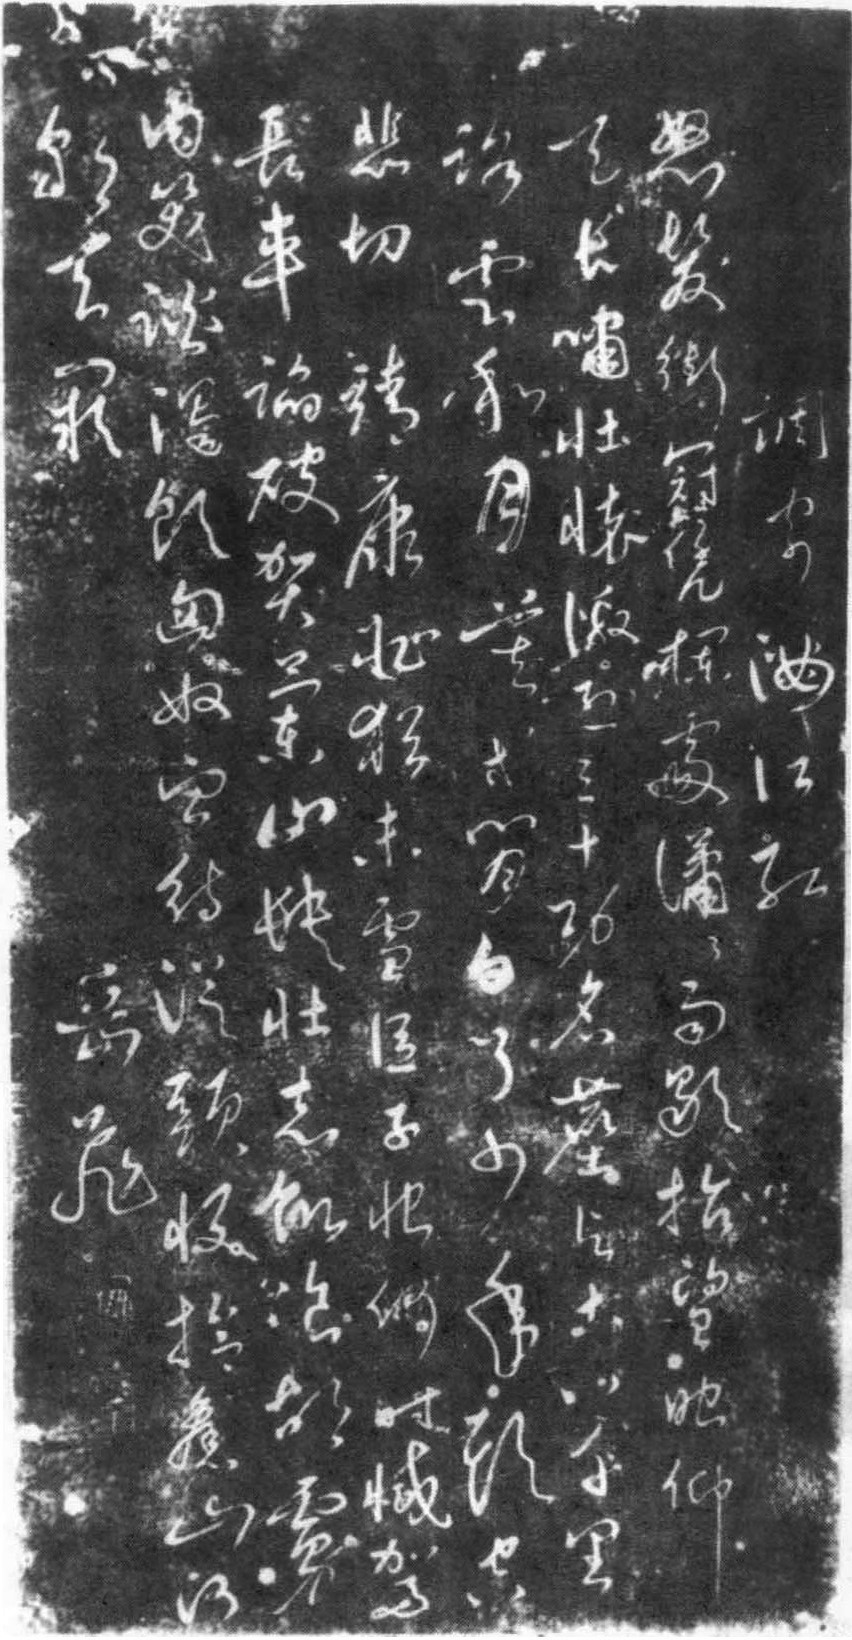 調寄 滿江紅
怒髮衝冠凭欄處瀟〻雨歇抬望眼仰
天長嘯壯懷激烈三十功名塵與土八千里
路雲和月莫等閒白了少年頭空
悲切 靖康恥猶未雪臣子恨何時滅駕
長車踏破賀蘭山缺壯志飢餐胡虜
肉笑談渴飲匈奴血待從頭收拾舊山河
朝天闕 岳飛